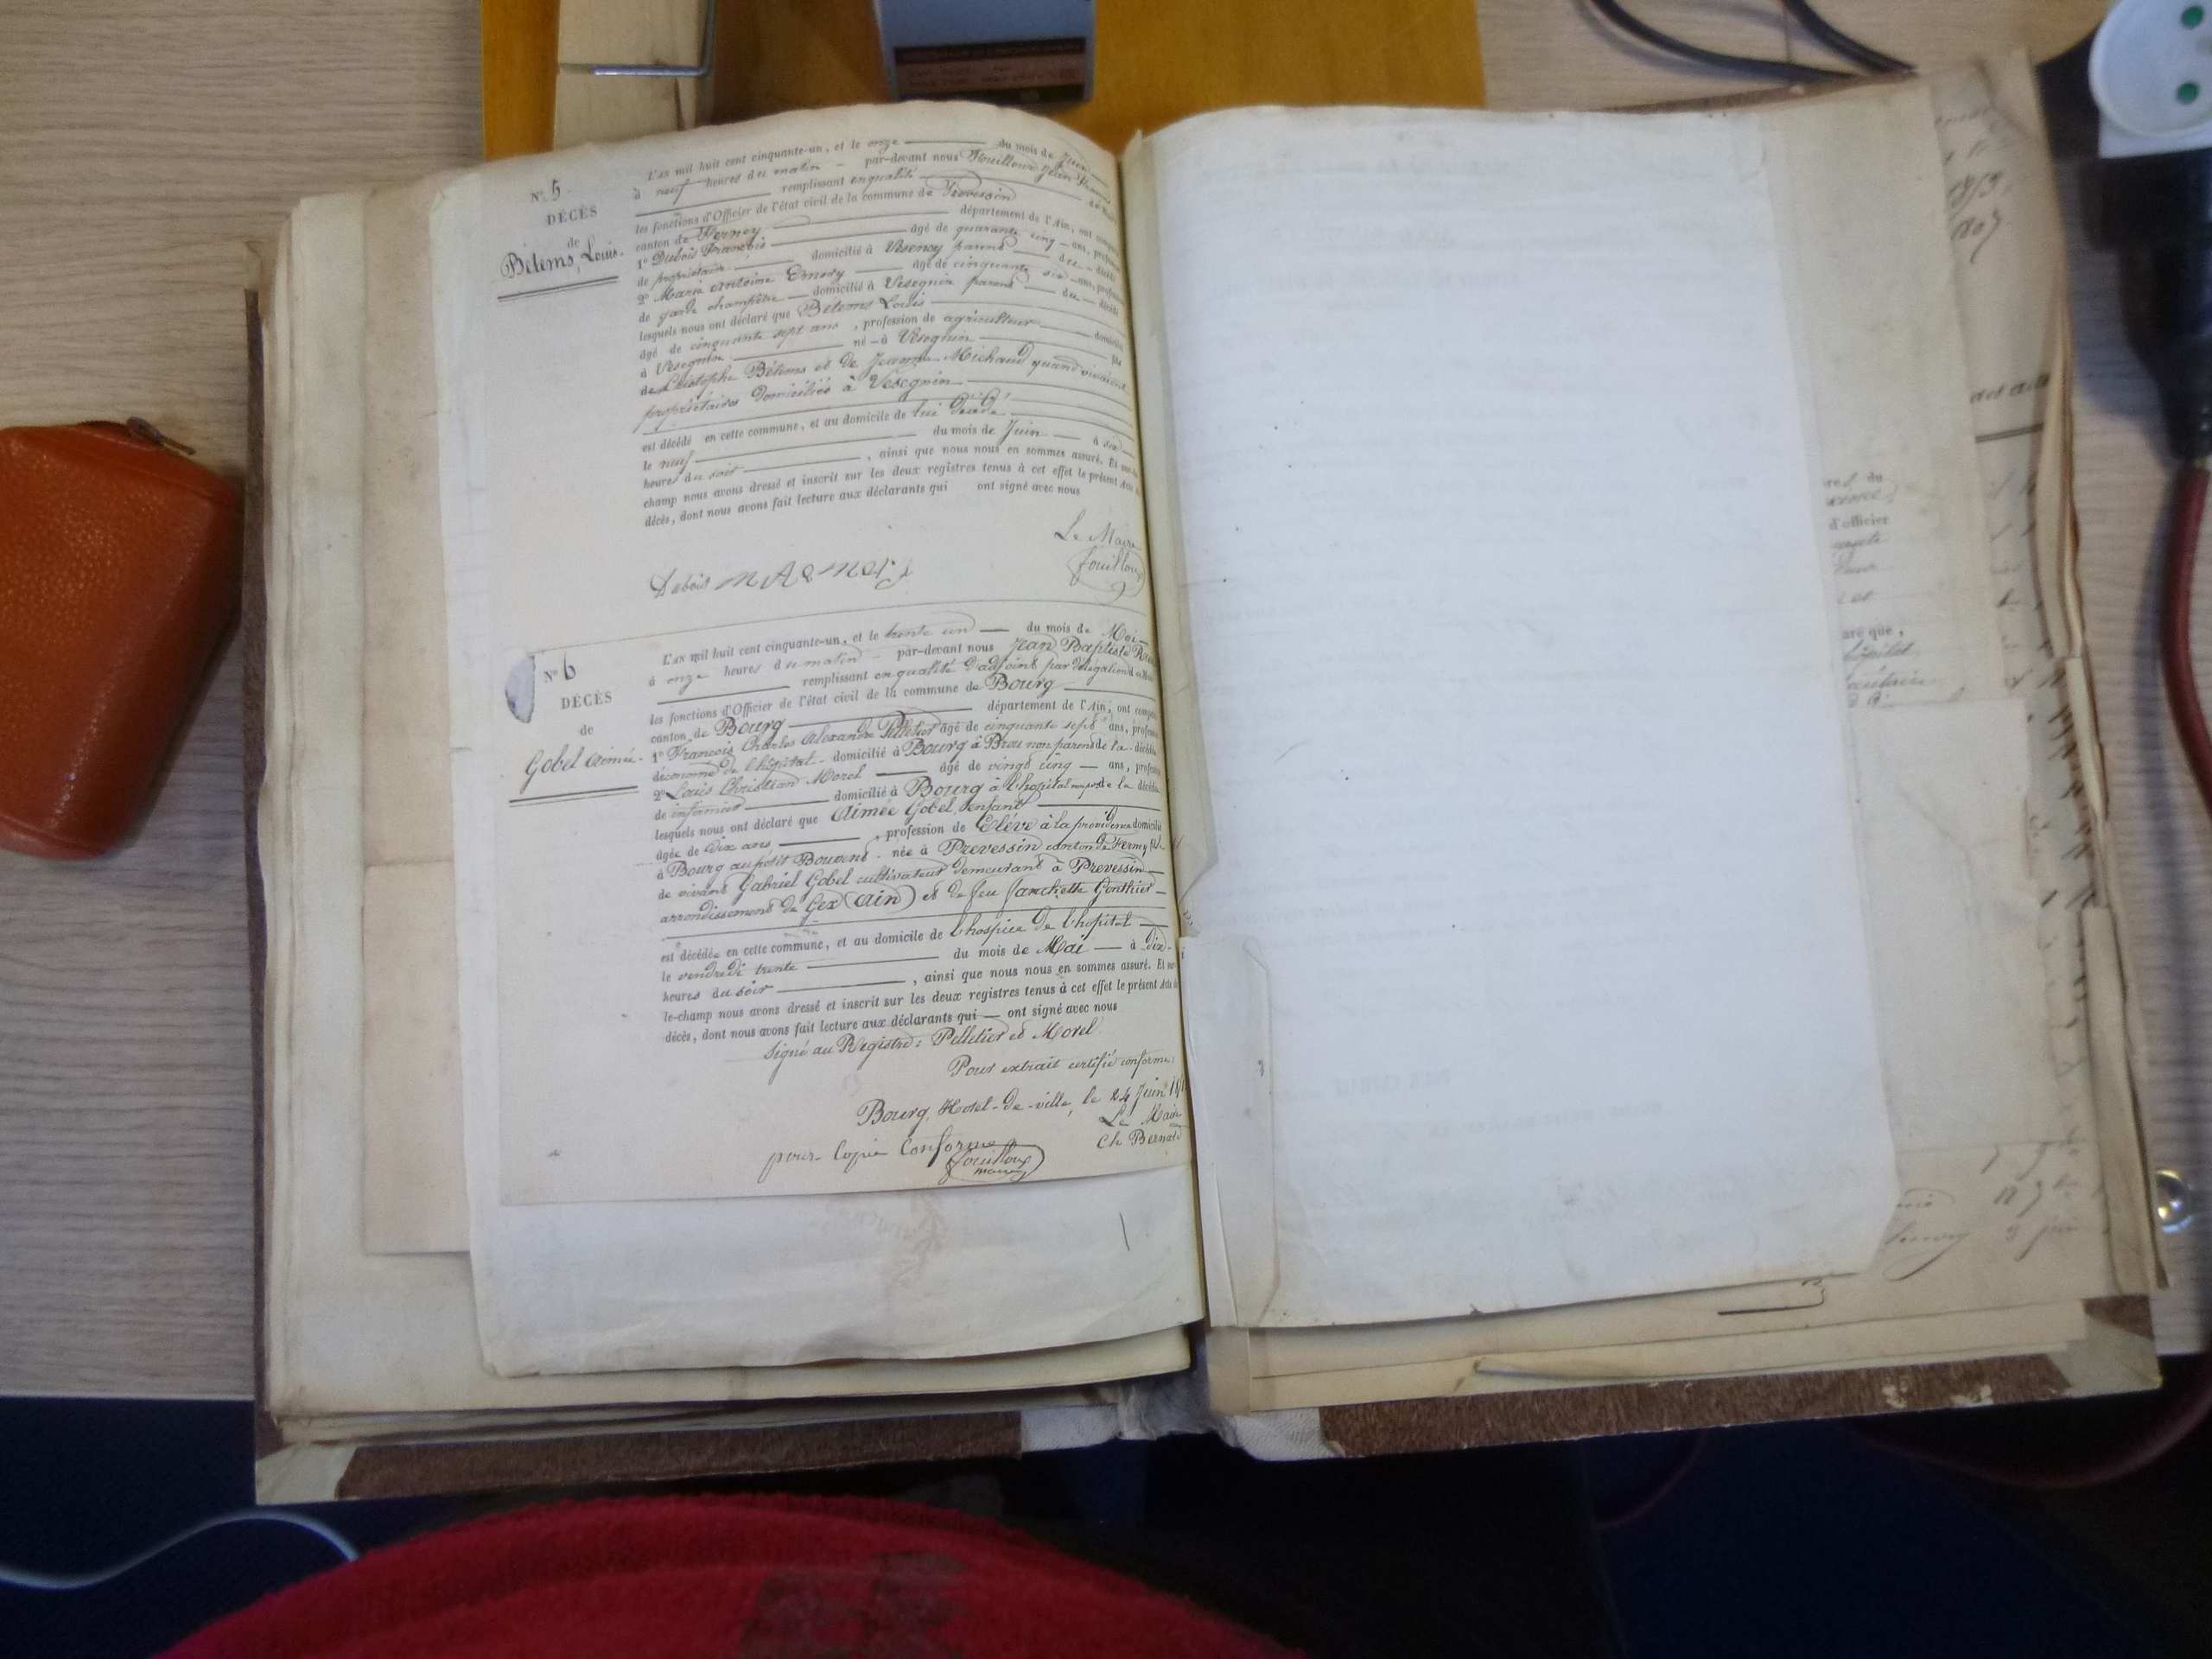 N° 5
DÉCÈS
de
Bétems, Louis.
L'AN mil huit cent cinquante-un, et le onze du mois de Juin
à neuf heures du matin par-devant nous Fouilloux Jean
remplissant en qualité de
les fonctions d'Officier de l'état civil de la commune de Prevessin
canton de Ferney département de l'Ain, ont
1° Dubois François âgé de quarante cinq ans,
de propriétaire domicilié à parent du décédé
2° Marie Antoine Emery âgé de cinquante six ans,
de garde champêtre domicilié à Vesegnin parent du décédé
lesquels nous ont déclaré que Bétems Louis
âgé de cinquante sept ans, profession de agriculteur
à Vesegnin né à Vesegnin fils
de Cristophe Bétems et de Jeanne Michaud quand vivaient
propriétaires domiciliés à Vésegnin
est décédé en cette commune, et au domicile de lui décédé
le neuf du mois de Juin à
heures du soir, ainsi que nous nous en sommes assuré. Et
champ nous avons dressé et inscrit sur les deux registres tenus à cet effet le présent acte
décès, dont nous avons fait lecture aux déclarants qui ont signé avec nous
Le Maire
Fouilloux
Dubois M A EMERY
N° 6
DÉCÈS
de
Gobel Aimée.
L'AN mil huit cent cinquante-un, et le trente un du mois de Mai
à onze heures du matin par-devant nous Jean Baptiste
remplissant en qualité d'adjoint par délégation
les fonctions d'Officier de l'état civil de la commune de Bourg
canton de Bourg département de l'Ain, ont
1° François Charles Alexandre Pelletier âgé de cinquante sept ans,
d'économe de l'hôpital domicilié à Bourg à Brou non parent de la décédée
2° Louis Christian Morel âgé de vingt cinq ans,
de infirmier domicilié à Bourg à l'hopital de la décédée
lesquels nous ont déclaré que Aimée Gobel, enfant
âgée de dix ans, profession de Elève à la providence domiciliée
à Bourg au petit Bouvent née à Prevessin canton de Ferney
de vivant Gabriel Gobel cultivateur demeurant à Prevessin
arrondissement de Gex (Ain) et de feu Fanchette Gonthier
est décédée en cette commune, et au domicile de l'hospice de l'hopital
le vendredi trente du mois de Mai à dix
heures du soir, ainsi que nous nous en sommes assuré. Et
le-champ nous avons dressé et inscrit sur les deux registres tenus à cet effet le présent acte
décès, dont nous avons fait lecture aux déclarants qui ont signé avec nous
Signé au Registre: Pelletier et Morel
Pour extrait certifié conforme:
Bourg, Hotel-de-ville, le 24 Juin
Le Maire
Ch Bernard
pour Copie Conforme
Fouilloux
maire